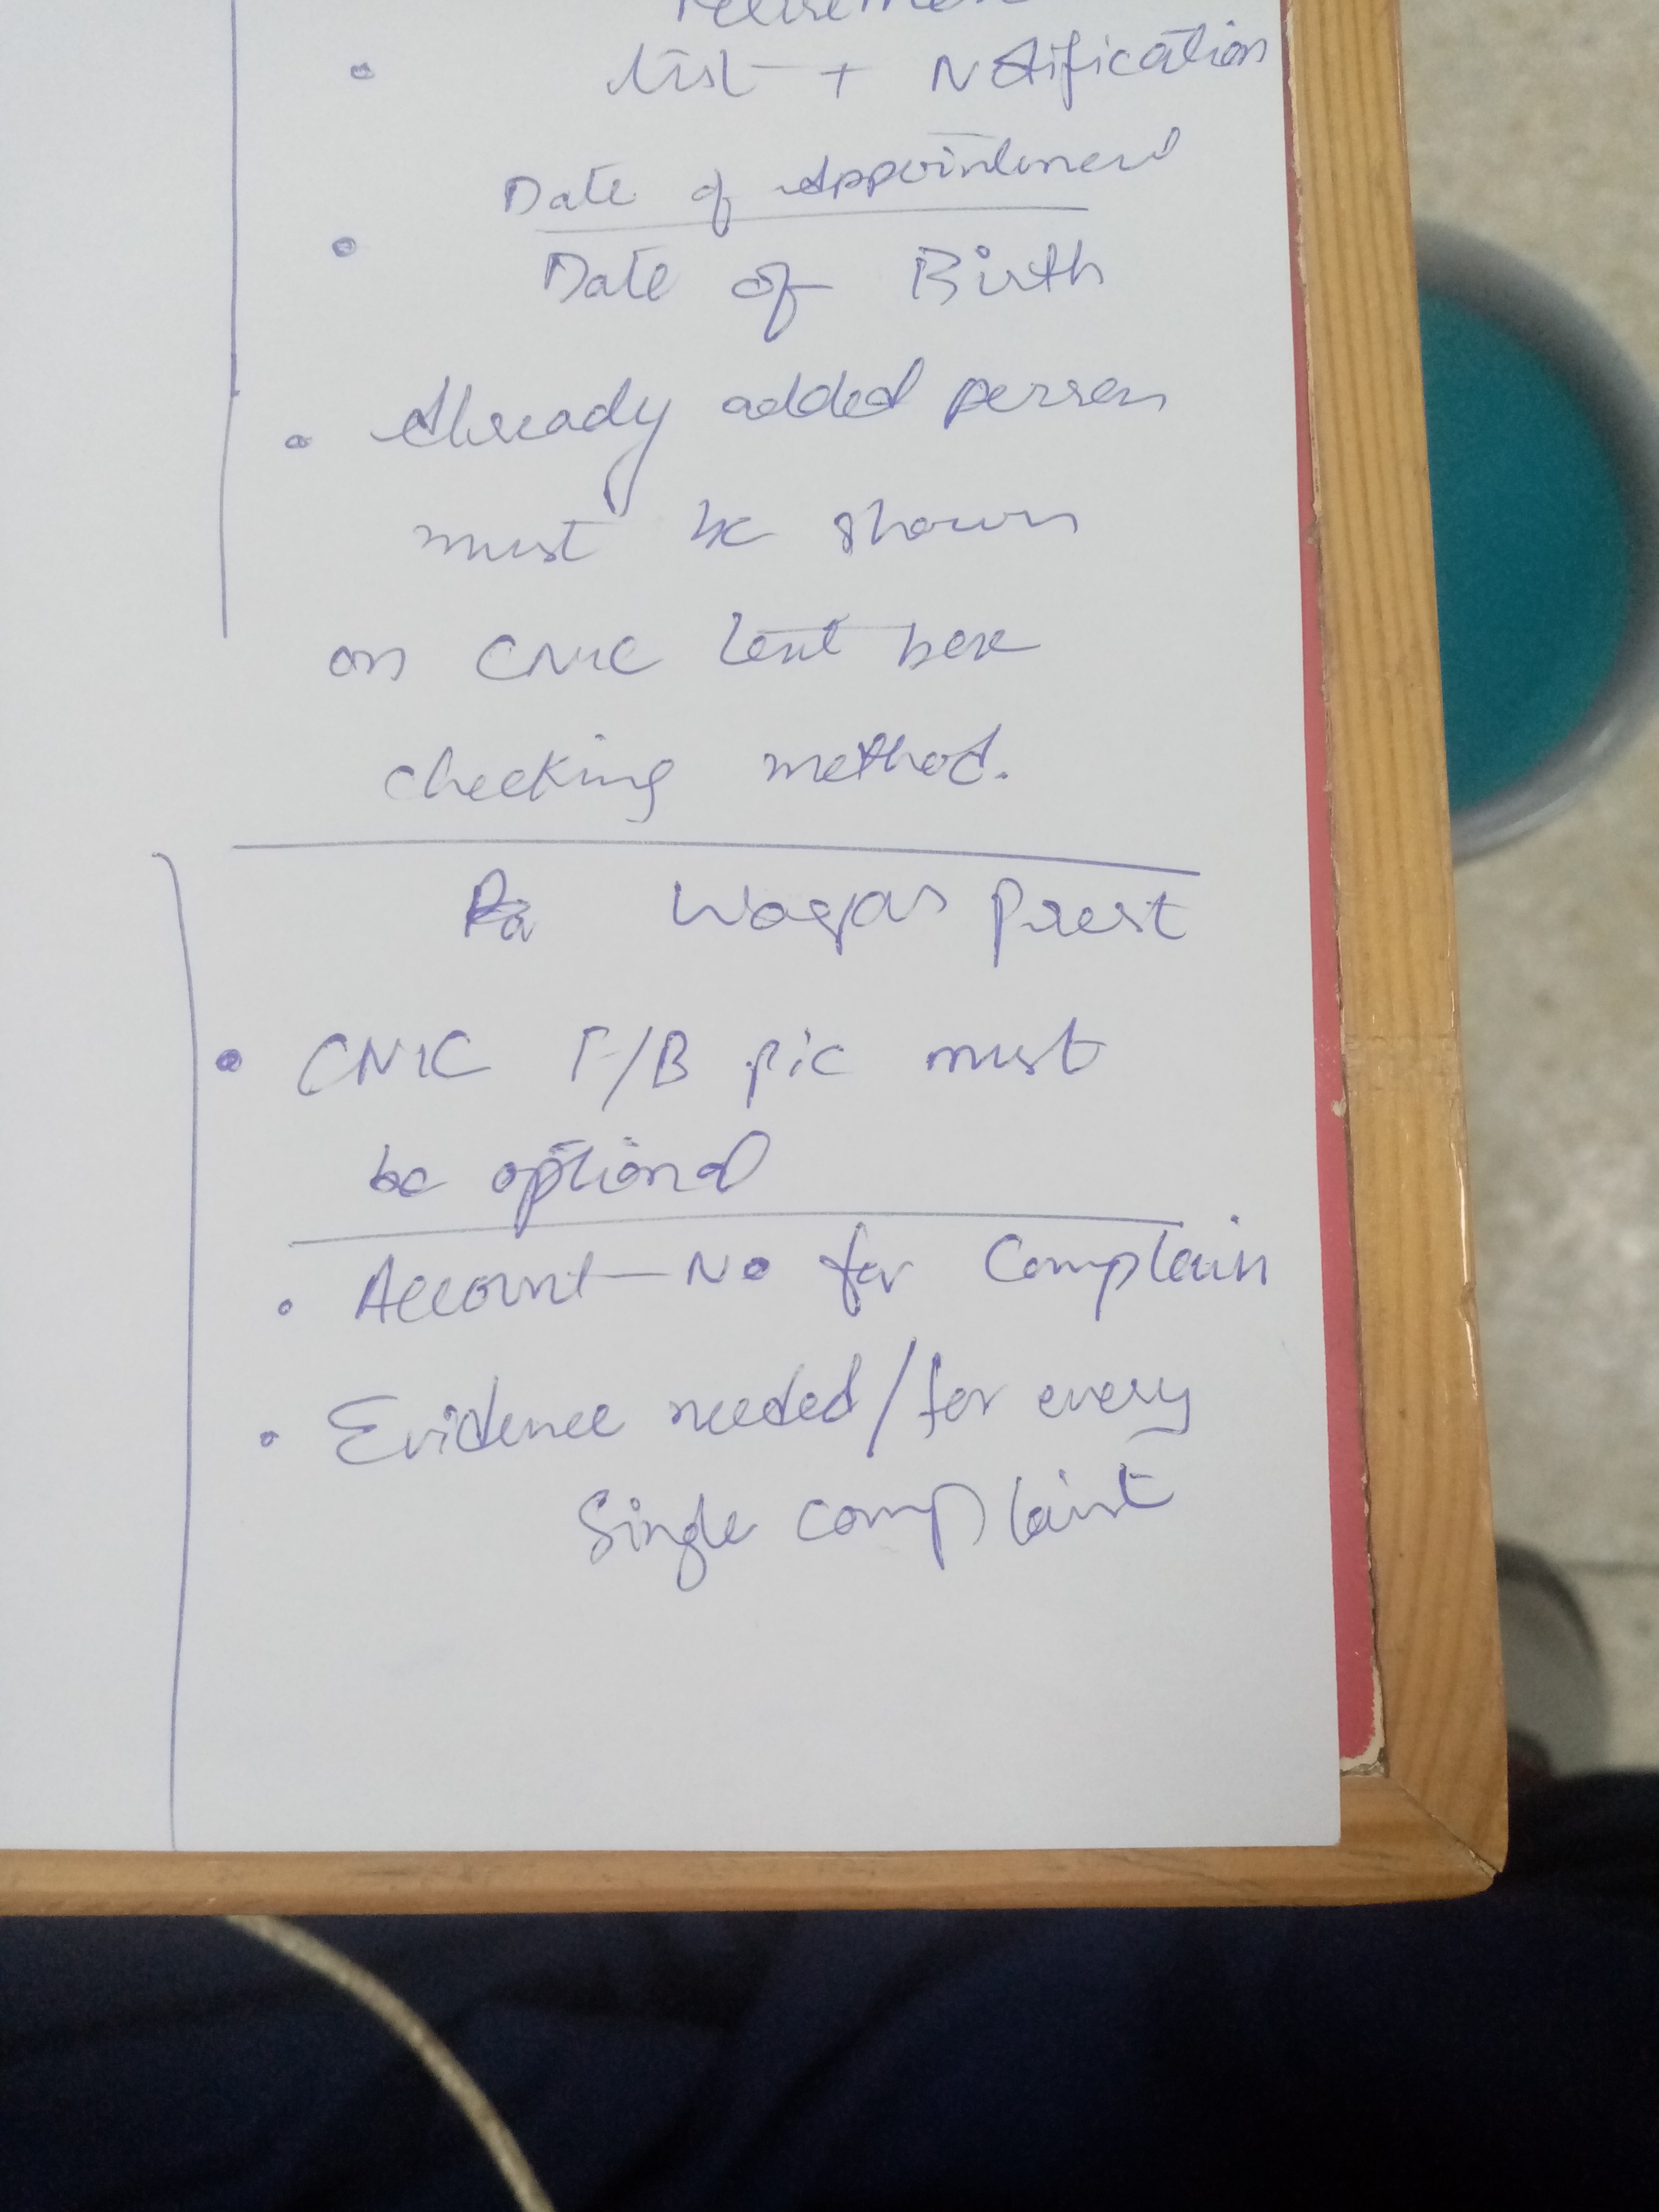 List + Notification
Date of Appointment
Date of Birth
Already added person
must be shown
on CNIC text box
checking method.
Waqas
CNIC F/B pic must
be optional
Account No for Complain
Evidence needed/for every
Single complaint